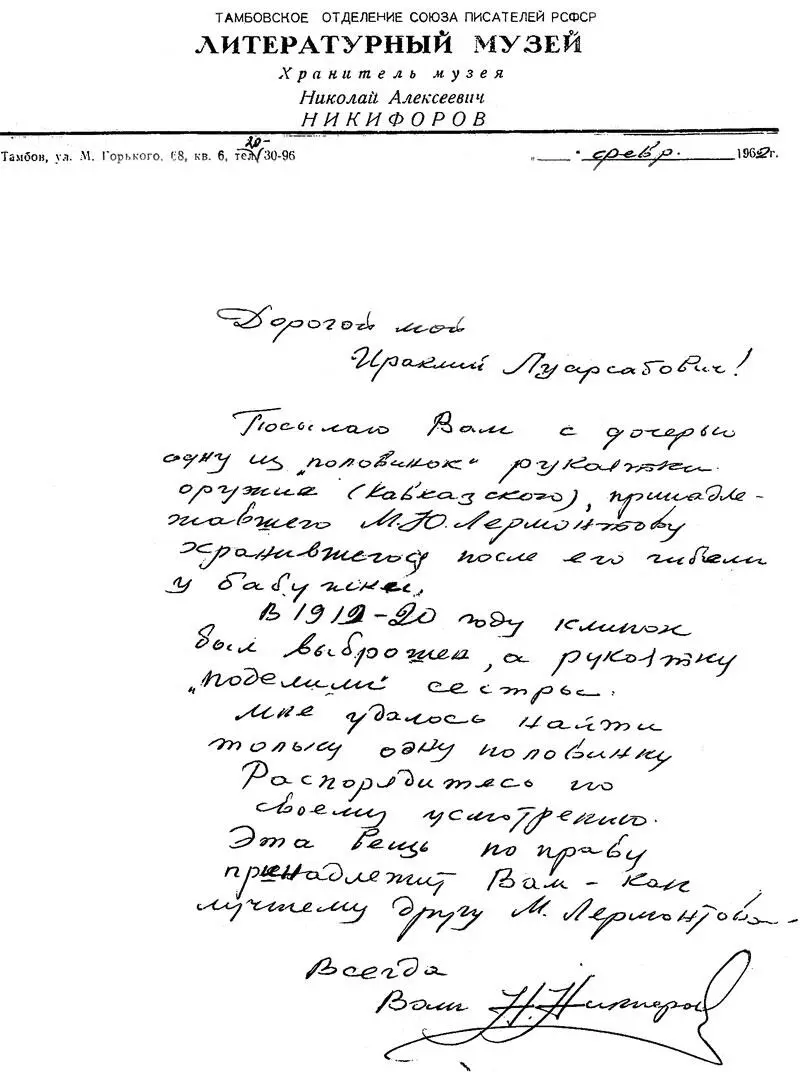 ТАМБОВСКОЕ ОТДЕЛЕНИЕ СОЮЗА ПИСАТЕЛЕЙ РСФСР
ЛИТЕРАТУРНЫЙ МУЗЕЙ
Хранитель музея
Николай Алексеевич
НИКИФОРОВ
20-
Тамбон, ул. М. Горького, 68, кв. 6, тел 30-96
„___" февр. 1962г.
Дорогой мой
Ираклий Луарсабович!
Посылаю Вам с дочерью
одну из „половинок" рукоятки
оружия (кавказского), принадле-
жавшего М.Ю. Лермонтову
хранившегося после его гибели
у бабушки.
В 1919-20 году клинок
был выброшен, а рукоятку
„поделили" сестры.
Мне удалось найти
только одну половинку
Распорядитесь по
своему усмотрению.
Эта вещь по праву
принадлежит Вам - как
лучшему другу М. Лермонтова -
Всегда
Ваш Н. Никифоров